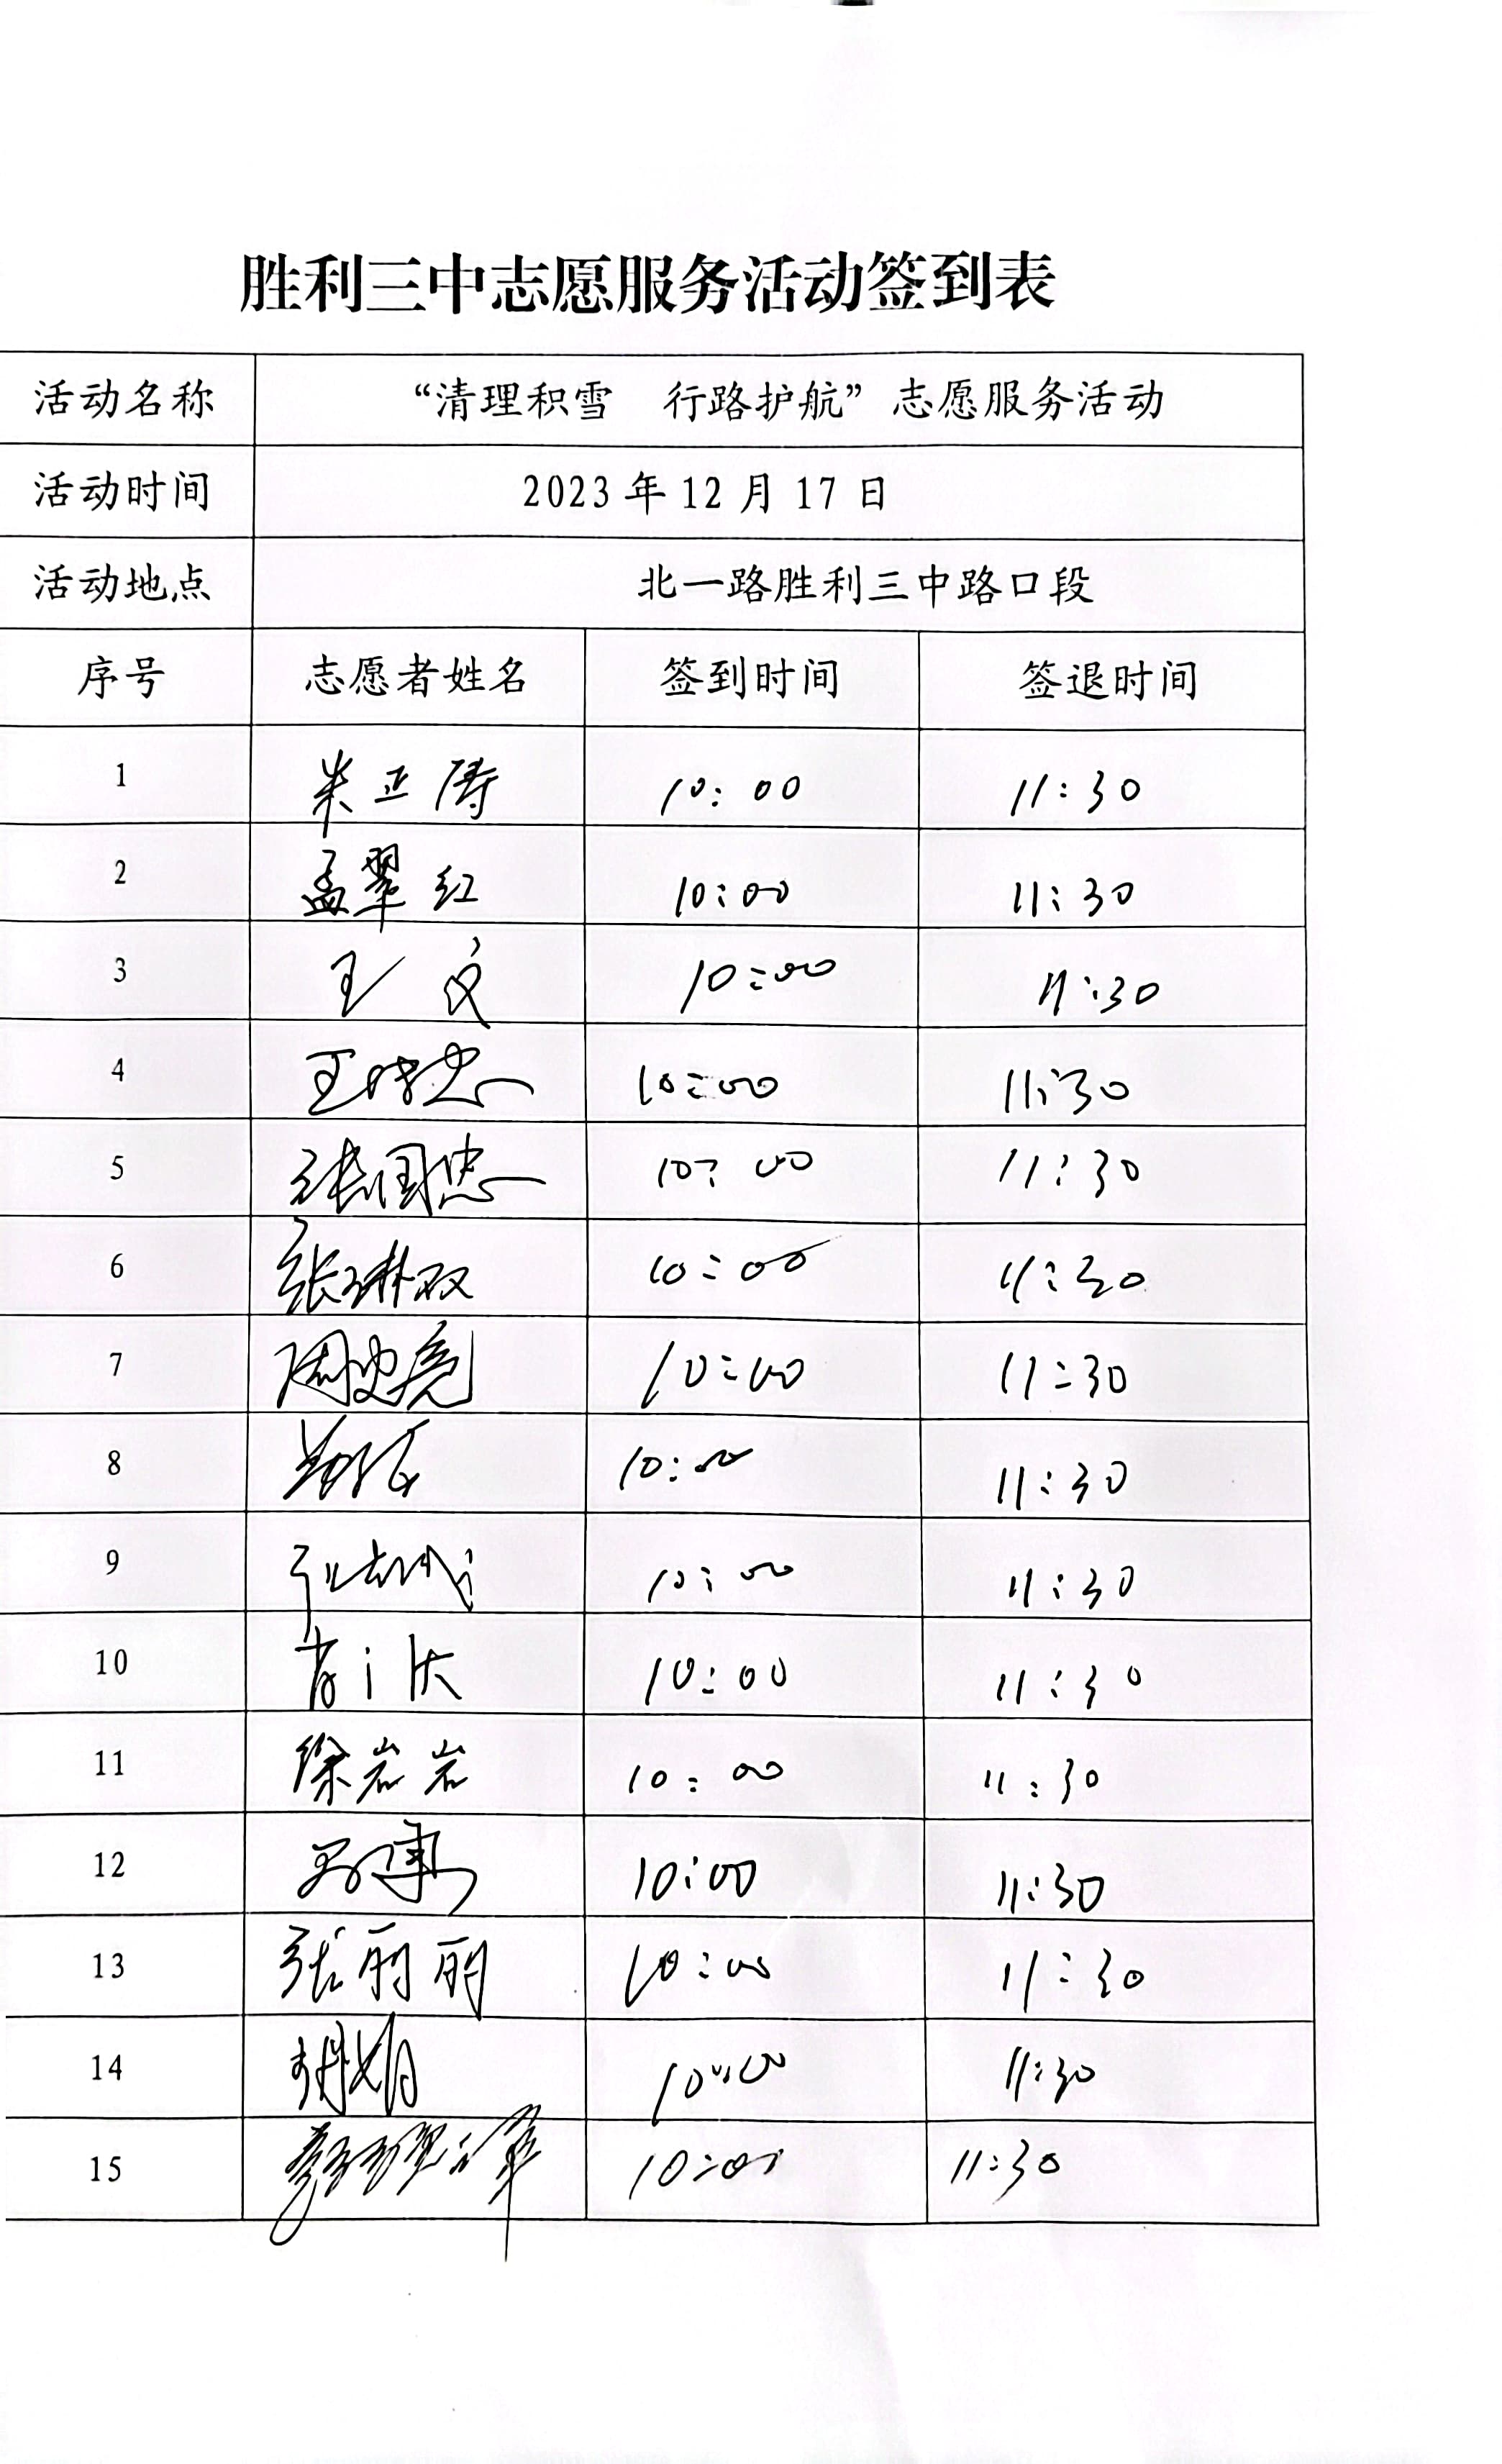 胜利三中志愿服务活动签到表
活动名称 “清理积雪 行路护航”志愿服务活动
活动时间 2023年12月17日
活动地点 北一路胜利三中路口段
序号 志愿者姓名 签到时间 签退时间
1 朱正涛 10:00 11:30
2 孟翠红 10:00 11:30
3 王文 10:00 11:30
4 10:00 11:30
5 张国忠 10:00 11:30
6 张琳双 10:00 11:30
7 10:00 11:30
8 10:00 11:30
9 10:00 11:30
10 10:00 11:30
11 徐岩岩 10:00 11:30
12 10:00 11:30
13 张丽丽 10:00 11:30
14 胡娟 10:00 11:30
15 10:00 11:30